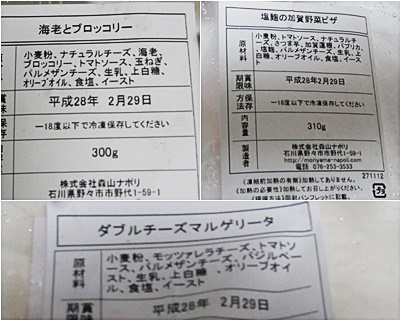 海老とブロッコリー
原材料
小麦粉、ナチュラルチーズ、海老、
ブロッコリー、トマトソース、玉ねぎ、
パルメザンチーズ、生乳、上白糖、
オリーブオイル、食塩、イースト
賞味
平成28年 2月29日
保存
-18度以下で冷凍保存してください
300g
株式会社森山ナポリ
石川県野々市市野代1-59-1
塩鱈の加賀野菜ピザ
原材料
小麦粉、トマトソース、ナチュラルチ
ーズ、さつま芋、加賀蓮根、パプリカ、
塩鱈、パルメザンチーズ、生乳、上
白糖、オリーブオイル、食塩、イースト
賞味期限
平成28年 2月29日
保存方法
-18度以下で冷凍保存してください
内容量
310g
製造者
株式会社森山ナポリ
石川県野々市市野代1-59-1
http://moriyama-napoli.com
電話 076-253-3533
《凍結前加熱の有無》加熱してありません。
《加熱の必要性》加熱してお召し上がりください。
《調理方法》同封パンフレットに記載。
271112
プラ
ダブルチーズマルゲリータ
原材料
小麦粉、モッツァレラチーズ、トマトソ
ース、パルメザンチーズ、バジルペー
スト、生乳、上白糖、オリーブオイ
ル、食塩、イースト
賞味期限
平成28年 2月29日